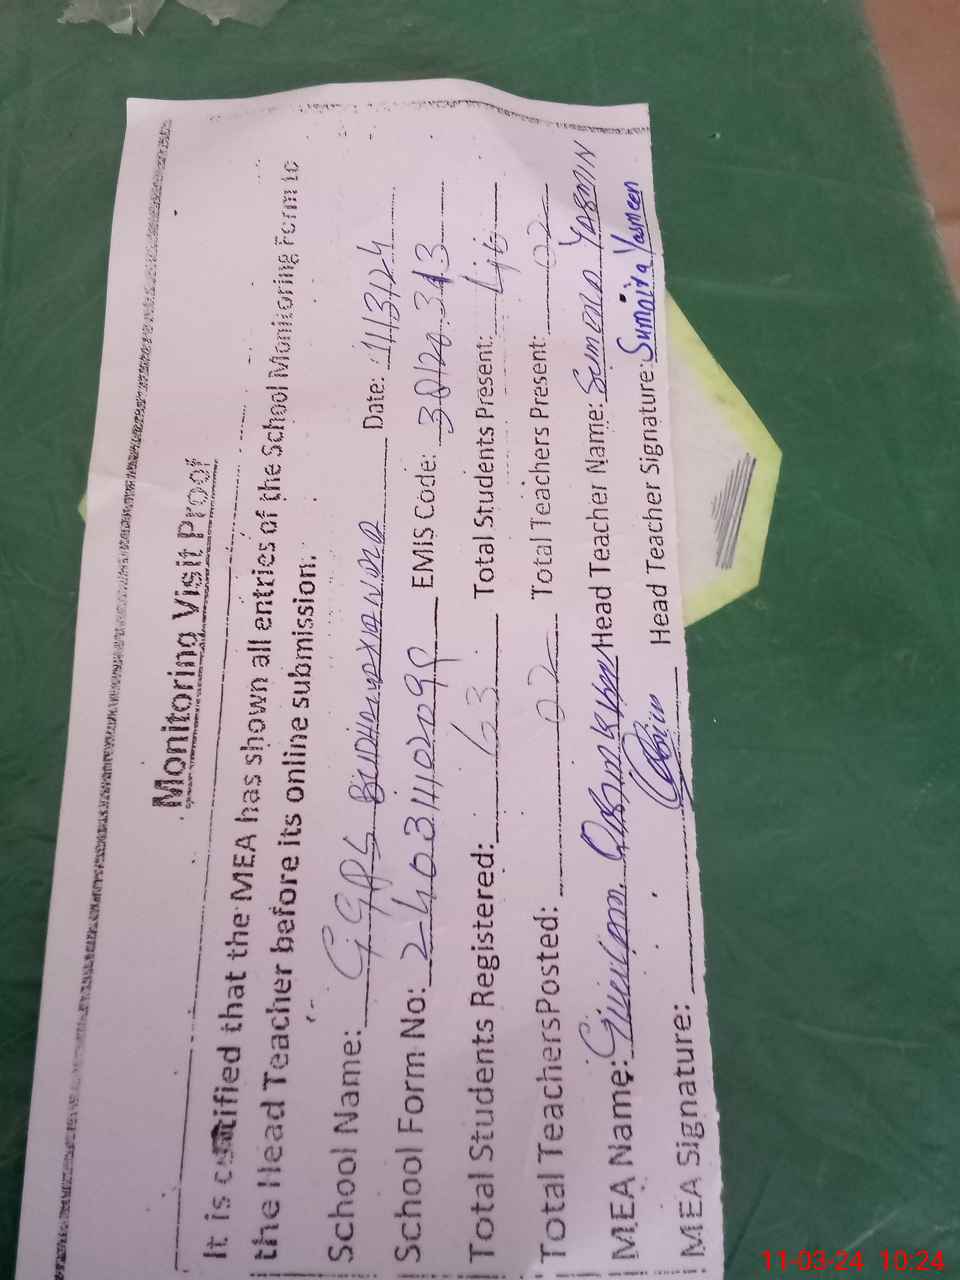 Monitoring Visit Proof
It is certified that the MEA has shown all entries of the School Monitoring Form to
the Head Teacher before its online submission.
School Name: GGPS Date: 11/3/24
School Form No: EMIS Code:
Total Students Registered: 63 Total Students Present:
Total Teachers Posted: 02 Total Teachers Present: 02
MEA Name: Head Teacher Name: Sumera YASMIN
MEA Signature: Head Teacher Signature: Yasmeen
11-03-24 10:24